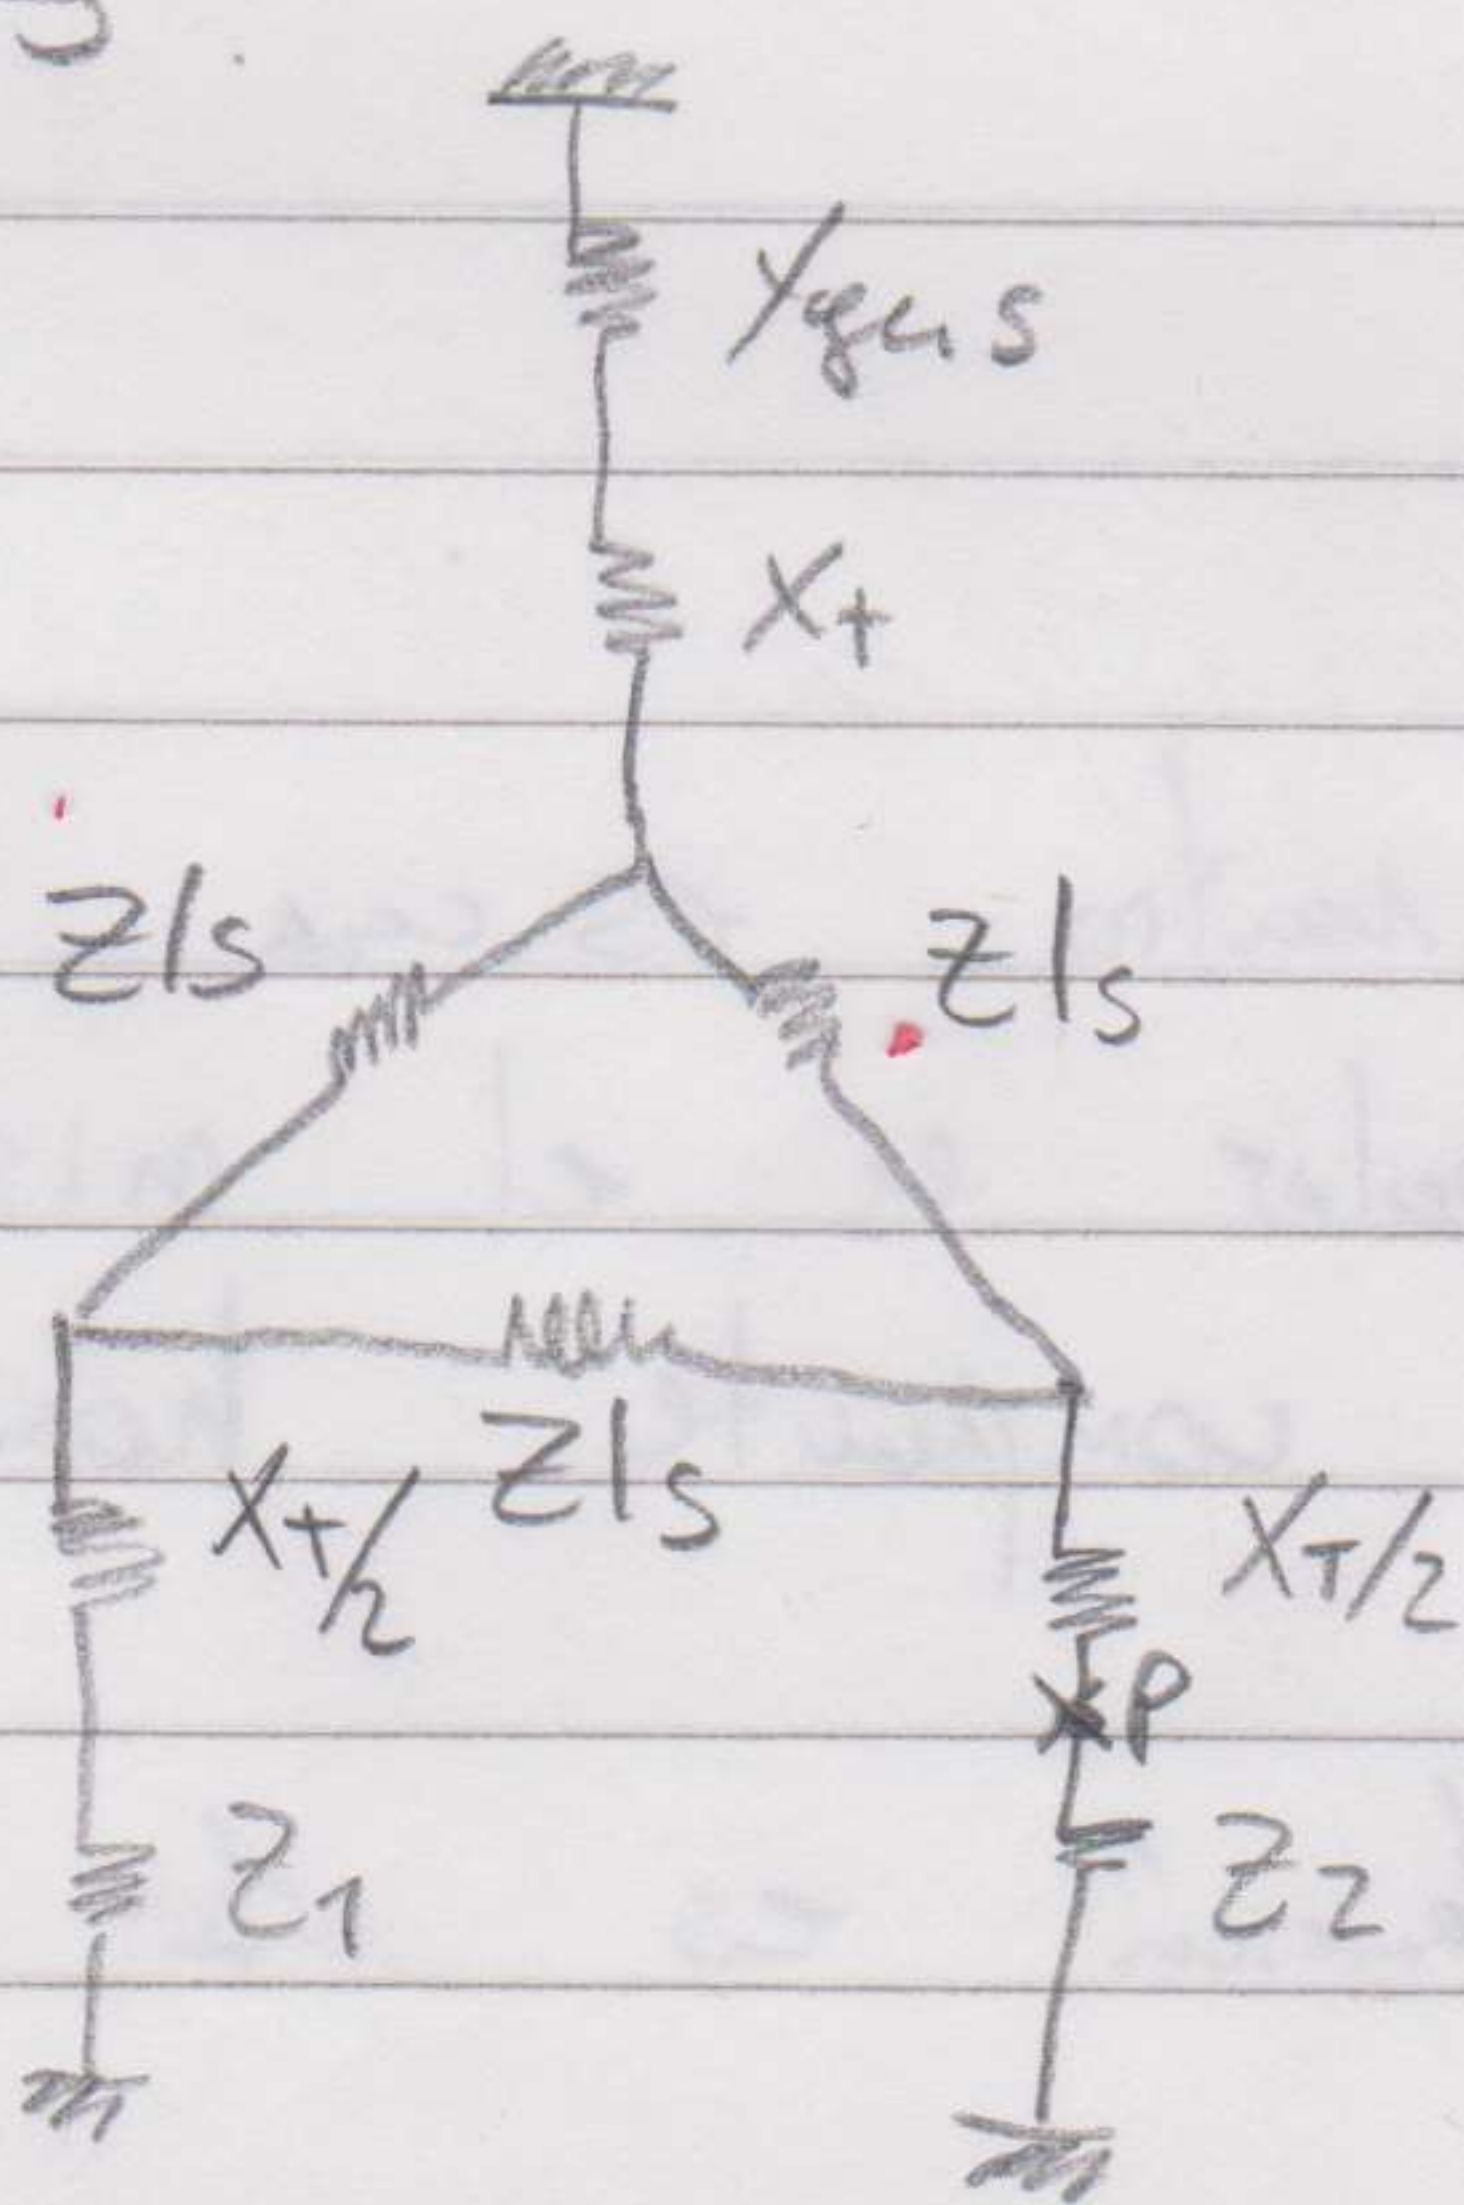 Ygus
X+
Zls
Zls
Zls
X+/2
XT/2
P
Z1
Z2